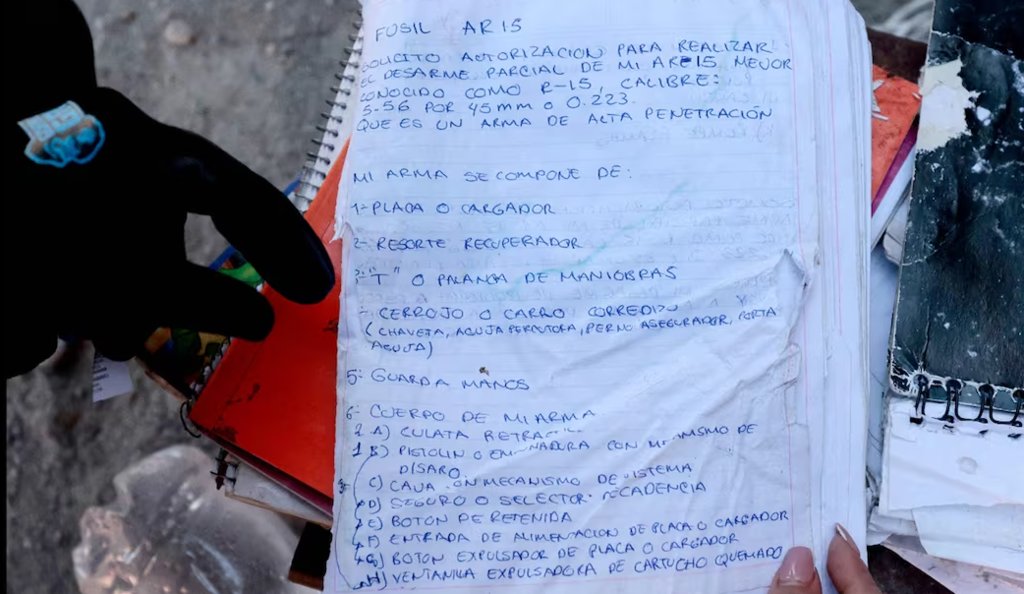 FUSIL AR15
SOLICITO AUTORIZACION PARA REALIZAR
EL DESARME PARCIAL DE MI ARE15 MEJOR
CONOCIDO COMO R-15, CALIBRE:
5-56 POR 45mm O 0.223.
QUE ES UN ARMA DE ALTA PENETRACIÓN
MI ARMA SE COMPONE DE:
1- PLACA O CARGADOR
2- RESORTE RECUPERADOR
"T" O PALANCA DE MANIOBRAS
CERROJO O CARRO CORREDIZO Y
(CHAVETA, AGUJA PERCUTORA, PERNO ASEGURADOR, PORTA
AGUJA)
5- GUARDA MANOS
6- CUERPO DE MI ARMA
A) CULATA RETRAC
B) PISTOLIN O CON MECANISMO DE
DISARO
C) CAJA CON MECANISMO DE SISTEMA
D) SEGURO O SELECTOR CADENCIA
E) BOTON DE RETENIDA
F) ENTRADA DE ALIMENTACION DE PLACA O CARGADOR
G) BOTON EXPULSADOR DE PLACA O CARGADOR
H) VENTANILLA EXPULSADORA DE CARTUCHO QUEMADO